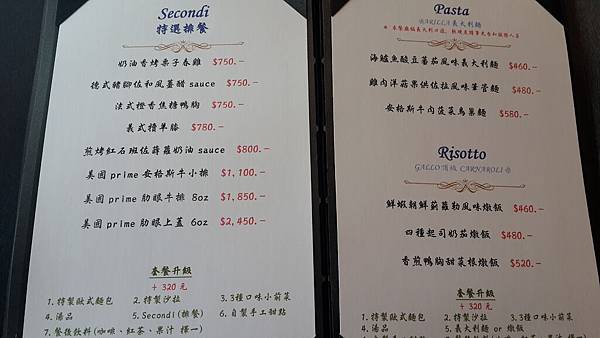 Secondi
特選排餐
奶油香烤栗子春雞 $750.-
德式豬腳佐和風薑醋 sauce $750.-
法式橙香焦糖鴨胸 $750.-
義式檀羊膝 $780.-
煎烤紅石斑佐蒔蘿奶油 sauce $800.-
美國 prime 安格斯牛小排 $1,100.-
美國 prime 肋眼牛排 8oz $1,850.-
美國 prime 肋眼上蓋 6oz $2,450.-
套餐升級
+ 320 元
1.特製歐式麵包 2.特製沙拉 3.3種口味小前菜
4.湯品 5.Secondi(排餐) 6.自製手工甜點
7.餐後飲料(咖啡、紅茶、果汁 擇一)
Pasta
BARILLA 義大利麵
海鱸魚酸豆蕃茄風味義大利麵 $460.-
雞肉洋菇果供佐拉風味筆管麵 $480.-
安格斯牛肉菠菜鳥巢麵 $580.-
Risotto
GALLO頂級 CARNAROLI 米
鮮蝦朝鮮薊羅勒風味燉飯 $460.-
四種起司奶茄燉飯 $480.-
香煎鴨胸甜菜根燉飯 $520.-
套餐升級
+ 320 元
1.特製歐式麵包 2.特製沙拉 3.3種口味小前菜
4.湯品 5.義大利麵 or 燉飯